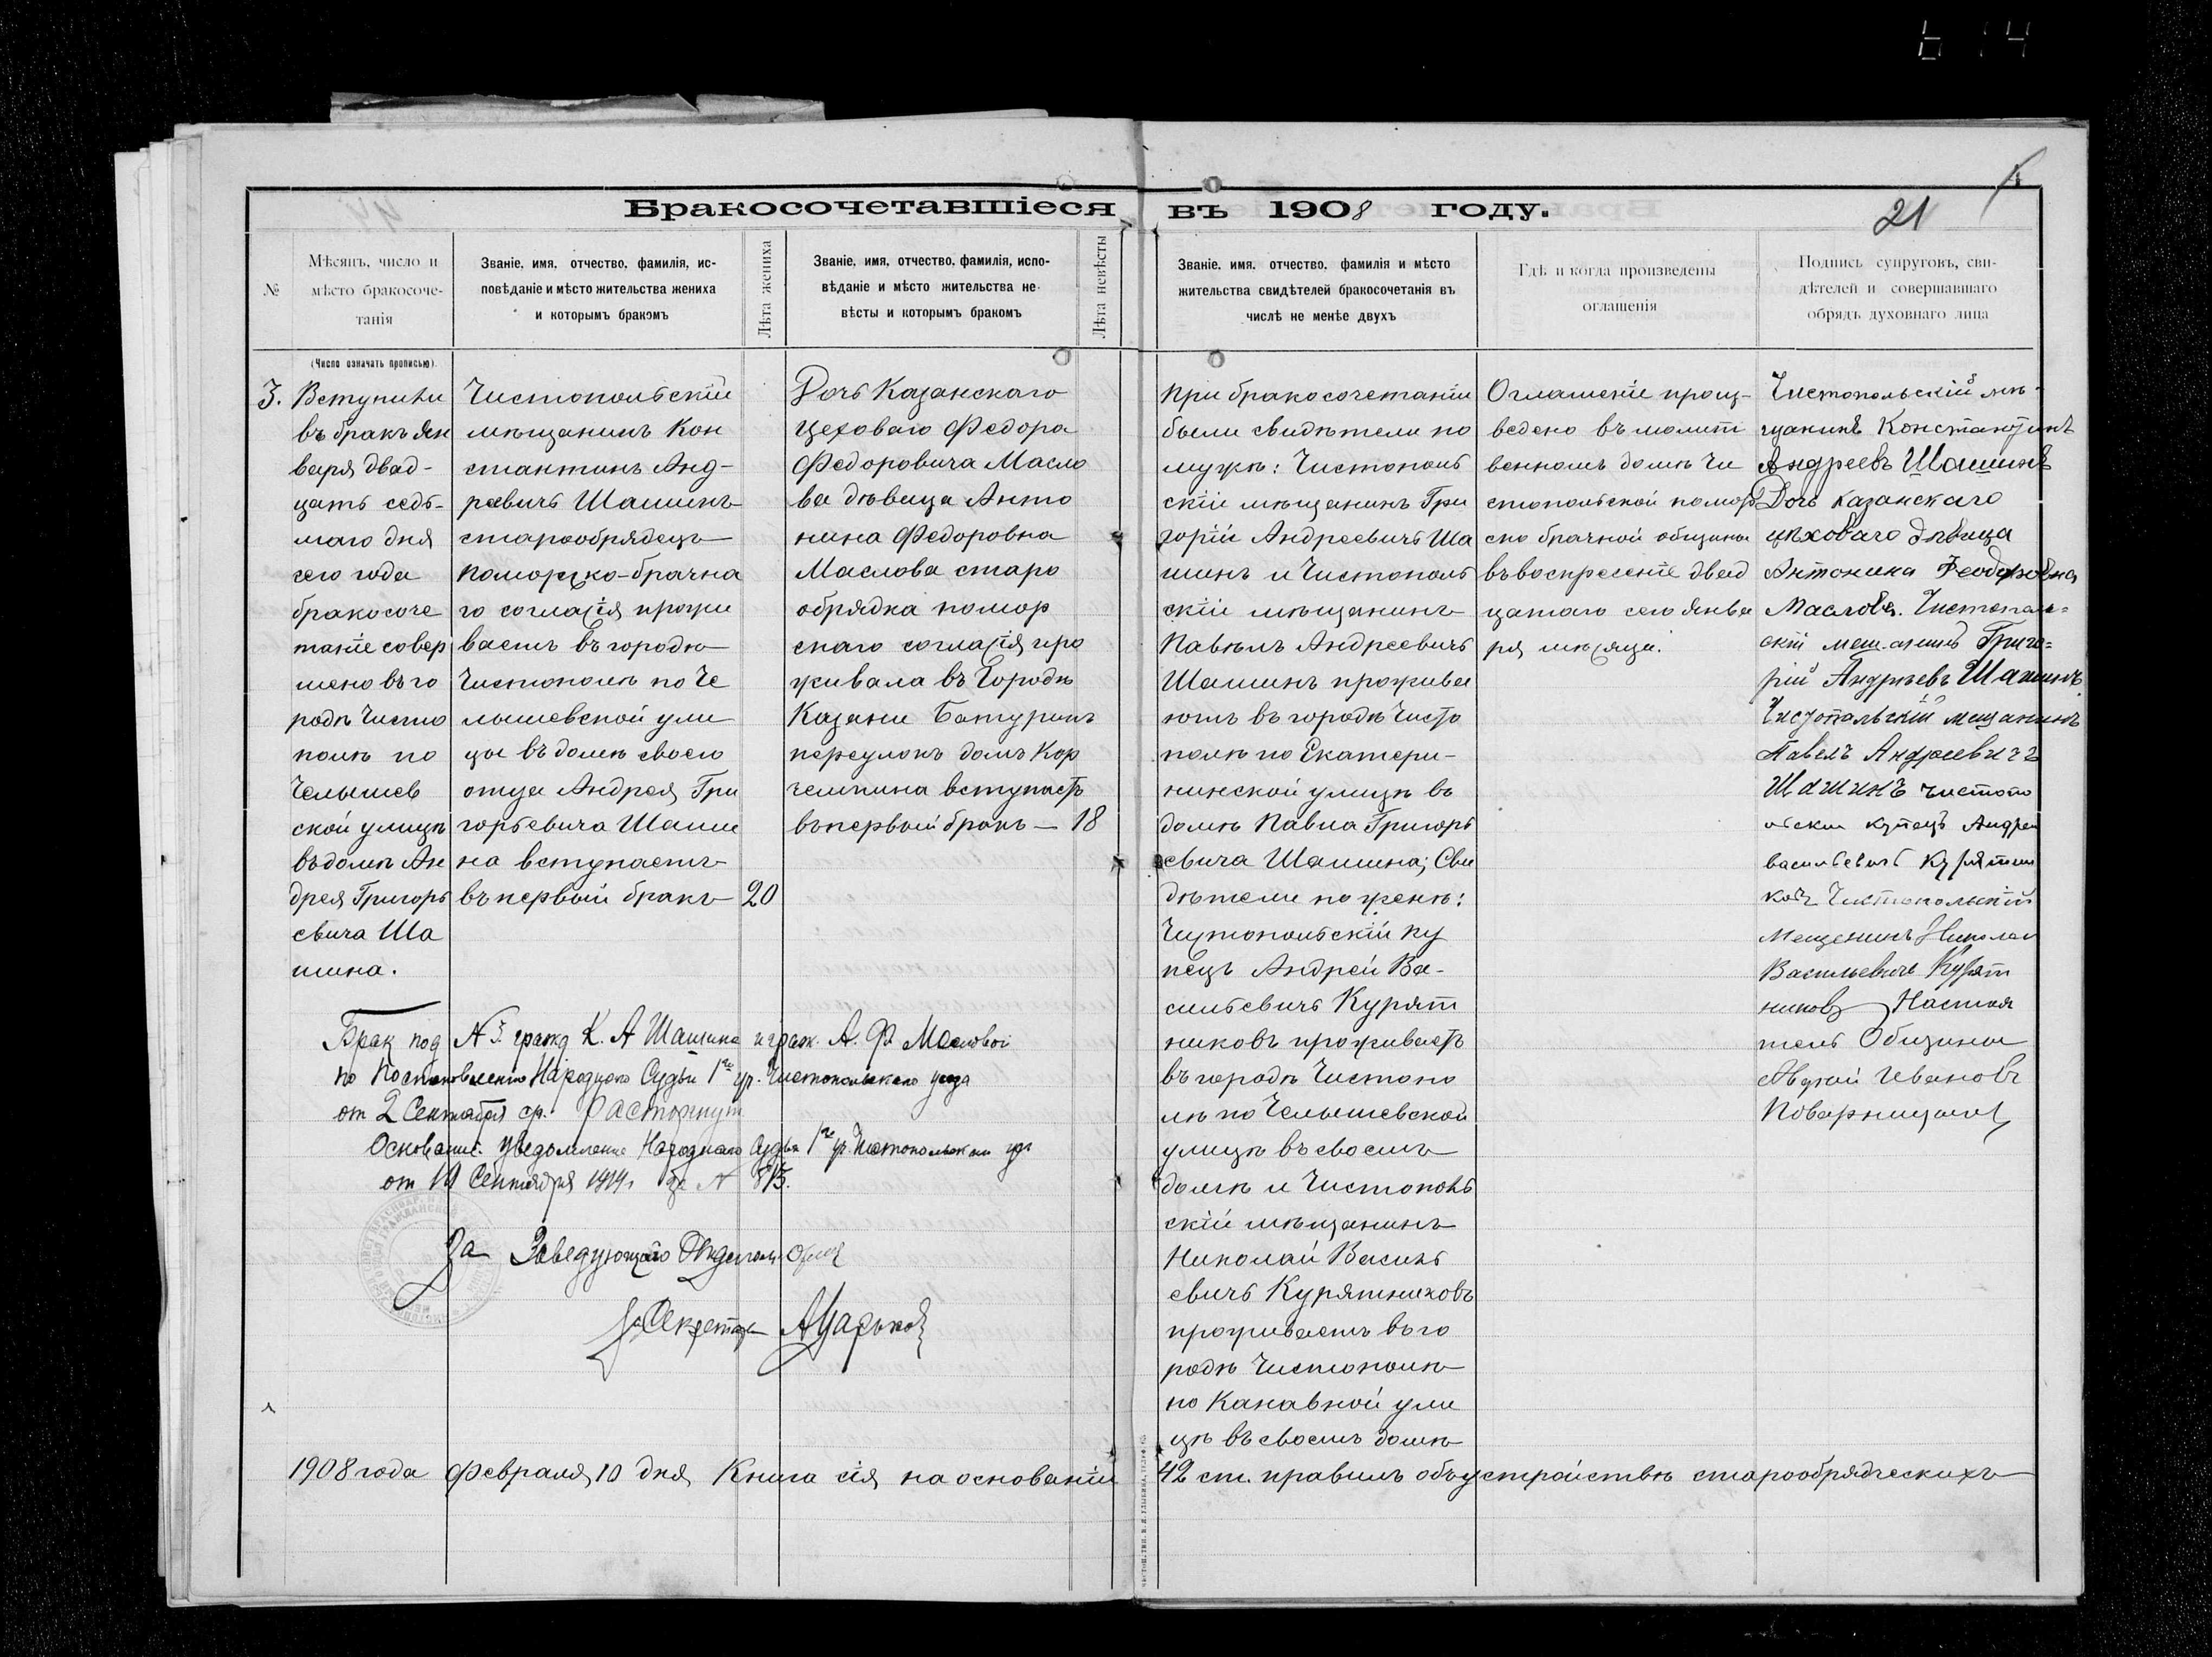 Бракосочетавшіеся въ 1908 году.
21
№
Мѣсяцъ, число и
мѣсто бракосоче-
танія
(Число означать прописью).
Званіе, имя, отчество, фамилія, ис-
повѣданіе и мѣсто жительства жениха
и которымъ бракомъ
Лѣта жениха
Званіе, имя, отчество, фамилія, испо-
вѣданіе и мѣсто жительства не-
вѣсты и которымъ бракомъ
Лѣта невѣсты
Званіе, имя, отчество, фамилія и мѣсто
жительства свидѣтелей бракосочетанія въ
числѣ не менѣе двухъ
Гдѣ и когда произведены
оглашенія
Подпись супруговъ, сви-
дѣтелей и совершавшаго
обрядъ духовнаго лица
3.
Вступили
въ бракъ Ян
варя двад-
цать седь-
маго дня
сего года
бракосоче
таніе совер
шено въ го
родѣ Чисто
полѣ по
Челышев
ской улицѣ
въ домѣ Ан
дрея Григорь
евича Ша
шина.
Чистопольскій
мѣщанинъ Кон
стантинъ Анд-
реевичъ Шашинъ
старообрядецъ
поморско-брачна
го согласія прожи
ваетъ въ городѣ
Чистополѣ по Че
лышевской ули
цѣ въ домѣ своего
отца Андрея Гри
горьевича Шаши
на вступаетъ
въ первый бракъ
20
Дочь Казанскаго
цеховаго Федора
Федоровича Масло
ва дѣвица Анто
нина Федоровна
Маслова старо
обрядка помор
скаго согласія про
живала въ Городѣ
Казани Батуринъ
переулокъ домъ Кор
чемкина вступаетъ
въ первый бракъ — 18
При бракосочетаніи
были свидѣтели по
мужѣ: Чистополь
скій мѣщанинъ Гри
горій Андреевичъ Ша
шинъ и Чистополь
скій мѣщанинъ
Павелъ Андреевичъ
Шашинъ прожива
ютъ въ городѣ Чисто
полѣ по Екатери-
нинской улицѣ въ
домѣ Павла Григорь
евича Шашина; Сви
дѣтели по женѣ:
Чистопольскій ку
пецъ Андрей Ва-
сильевичъ Курят
никовъ проживаетъ
въ городѣ Чистопо
лѣ по Челышевской
улицѣ въ своемъ
домѣ и Чистополь
скій мѣщанинъ
Николай Василь
евичъ Курятниковъ
проживаетъ въ го
родѣ Чистополѣ
по Канавной ули
цѣ въ своемъ домѣ
Оглашеніе произ-
ведено въ молит
венномъ домѣ Чи
стопольской помор
ско брачной общины
въ воскресеніе двад
цатаго сего Янва
ря мѣсяца.
Чистопольскій мѣ-
щанинъ Константинъ
Андреевъ Шашинъ
Дочь казанскаго
цѣховаго дѣвица
Антонина Феодоровна
Маслова. Чистополь=
скій мещанинъ Григо=
рій Андрѣевъ Шашинъ
Чистопальскій мещанинъ
Павелъ Андреевичъ
Шашинъ чистопо
льски купецъ Андрей
васильевичъ Курятни
ковъ Чистопольскій
Мещенинъ Николаи
Васильевичъ Курят
никовъ Настоя
тель Общины
Авдкий Ивановъ
Поварницынъ
Брак под N 3. гражд К. А Шашина и граж. А. Ф. Масловой
по Постановлению Народного Судьи 1го уч. Чистопольского уезда
от 2 Сентября ср. Расторгнут
Основание. Уведомление Народного Судьи 1го уч. Чистопольского уез
от 19 Сентября 1919г за N 815.
За Заведующаго Отделом
Секретарь
1908 года Февраля 10 дня Книга сія на основаніи 42 ст. правилъ объ устройствѣ старообрядческихъ